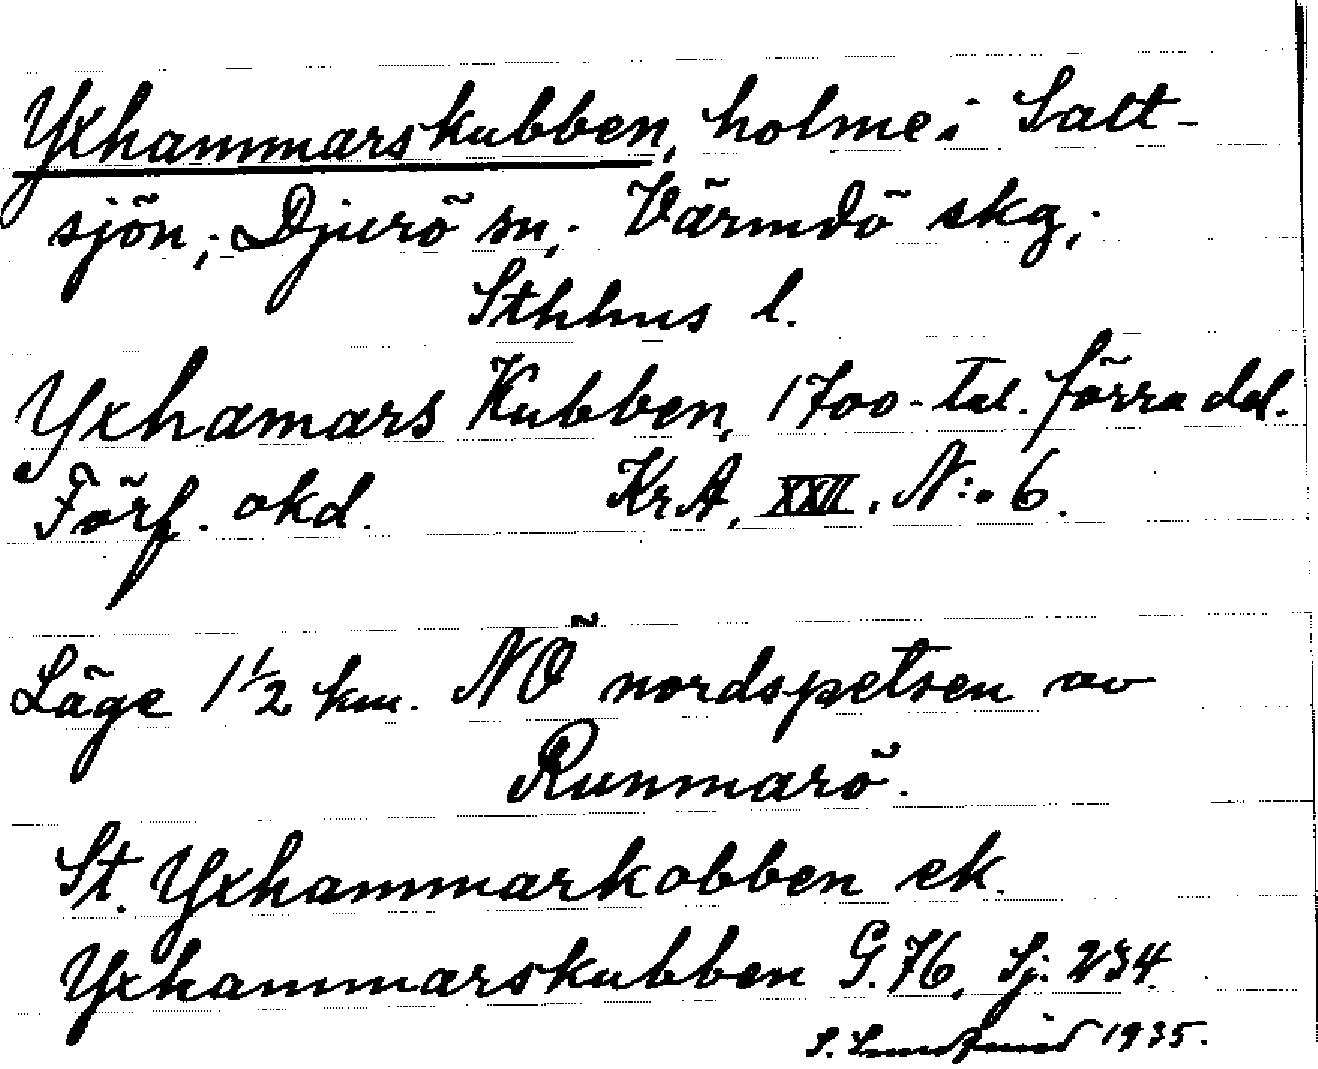 Yxhammarskubben, holme i Salt-
sjön; Djurö sn; Värmdö skg;
Sthlms l.
Yxhamars Kubben, 1700-tal. förra del.
Förf. okd. Kr.A. XXII. N:o 6.
Läge 1 1/2 km. NÖ nordspetsen av
Runmarö.
St. Yxhammarkobben ek.
Yxhammarskubben G.76, Sj. 234.
S. 1935.